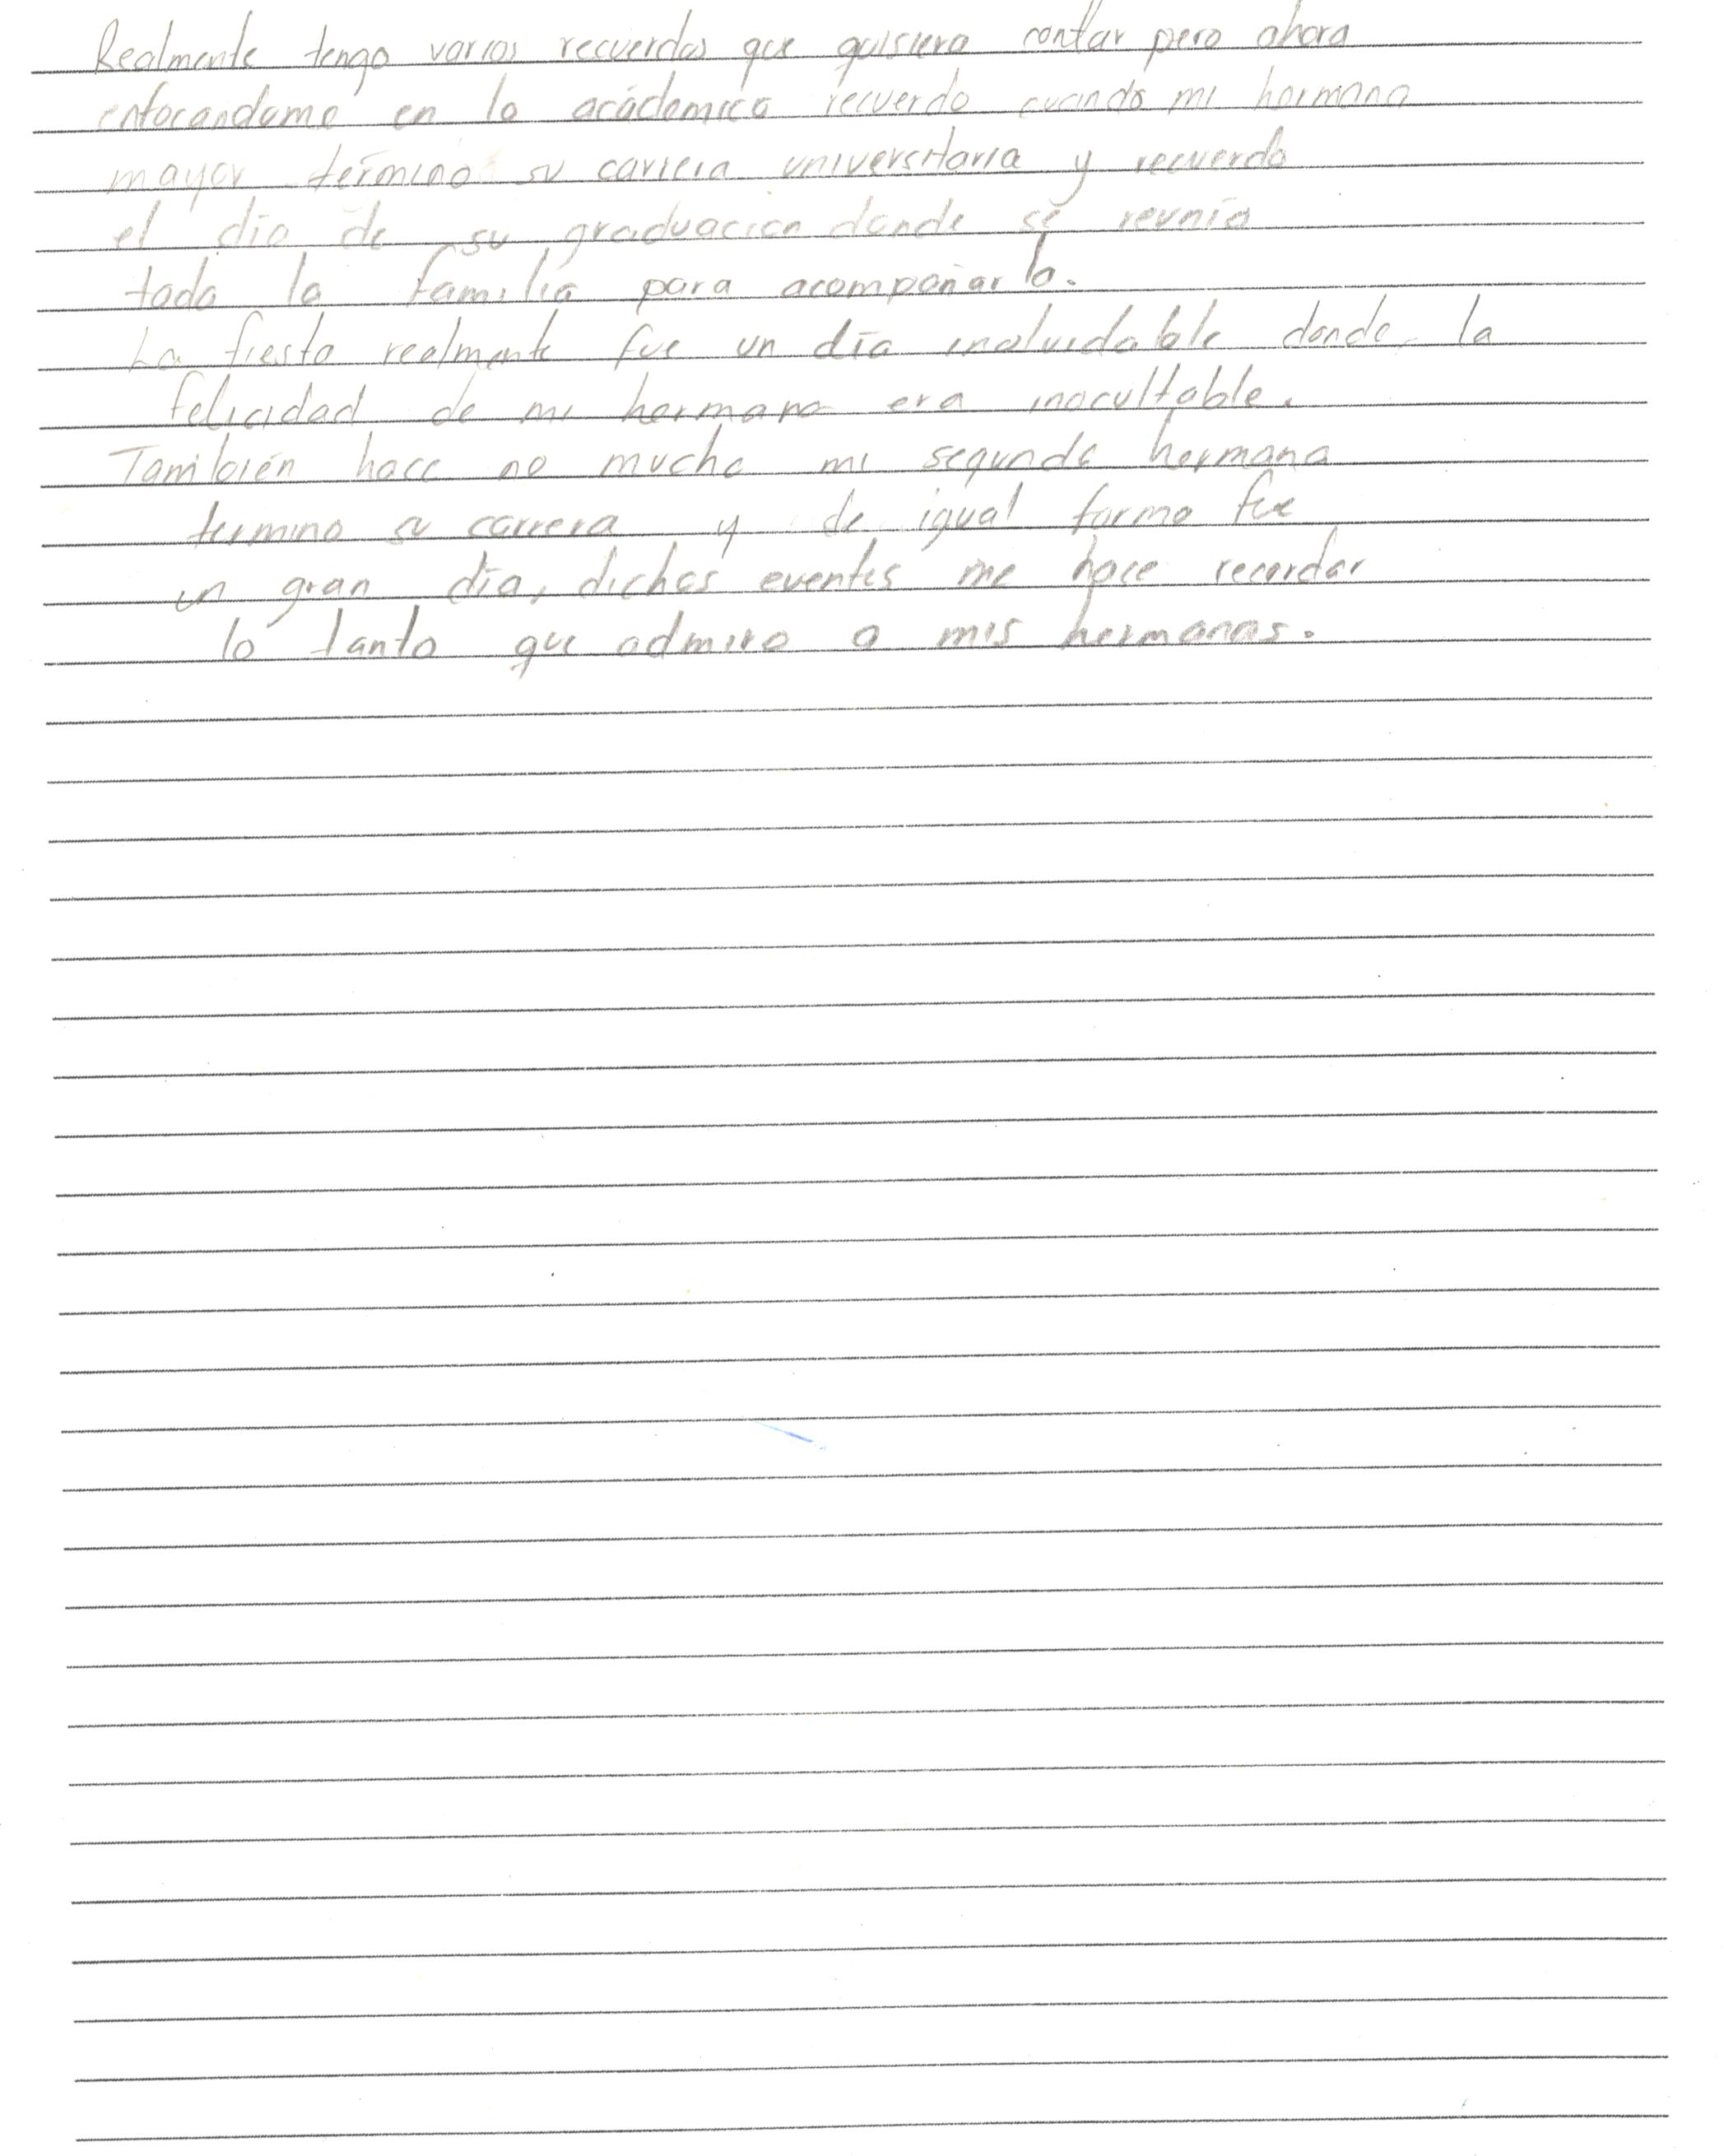 Realmente tengo varios recuerdos que quisiera contar pero ahora
enfocandome en lo acádemico recuerdo cuando mi hermana
mayor términó su carrera universitaria y recuerdo
el día de su graduación donde se reunía
toda la familia para acompañarla.
La fiesta realmente fue un día inolvidable donde la
felicidad de mi hermana era inocultable.
También hace no mucho mi segunda hermana
termino su carrera y de igual forma fue
un gran día, dichos eventos me hace recordar
lo tanto que admiro a mis hermanas.